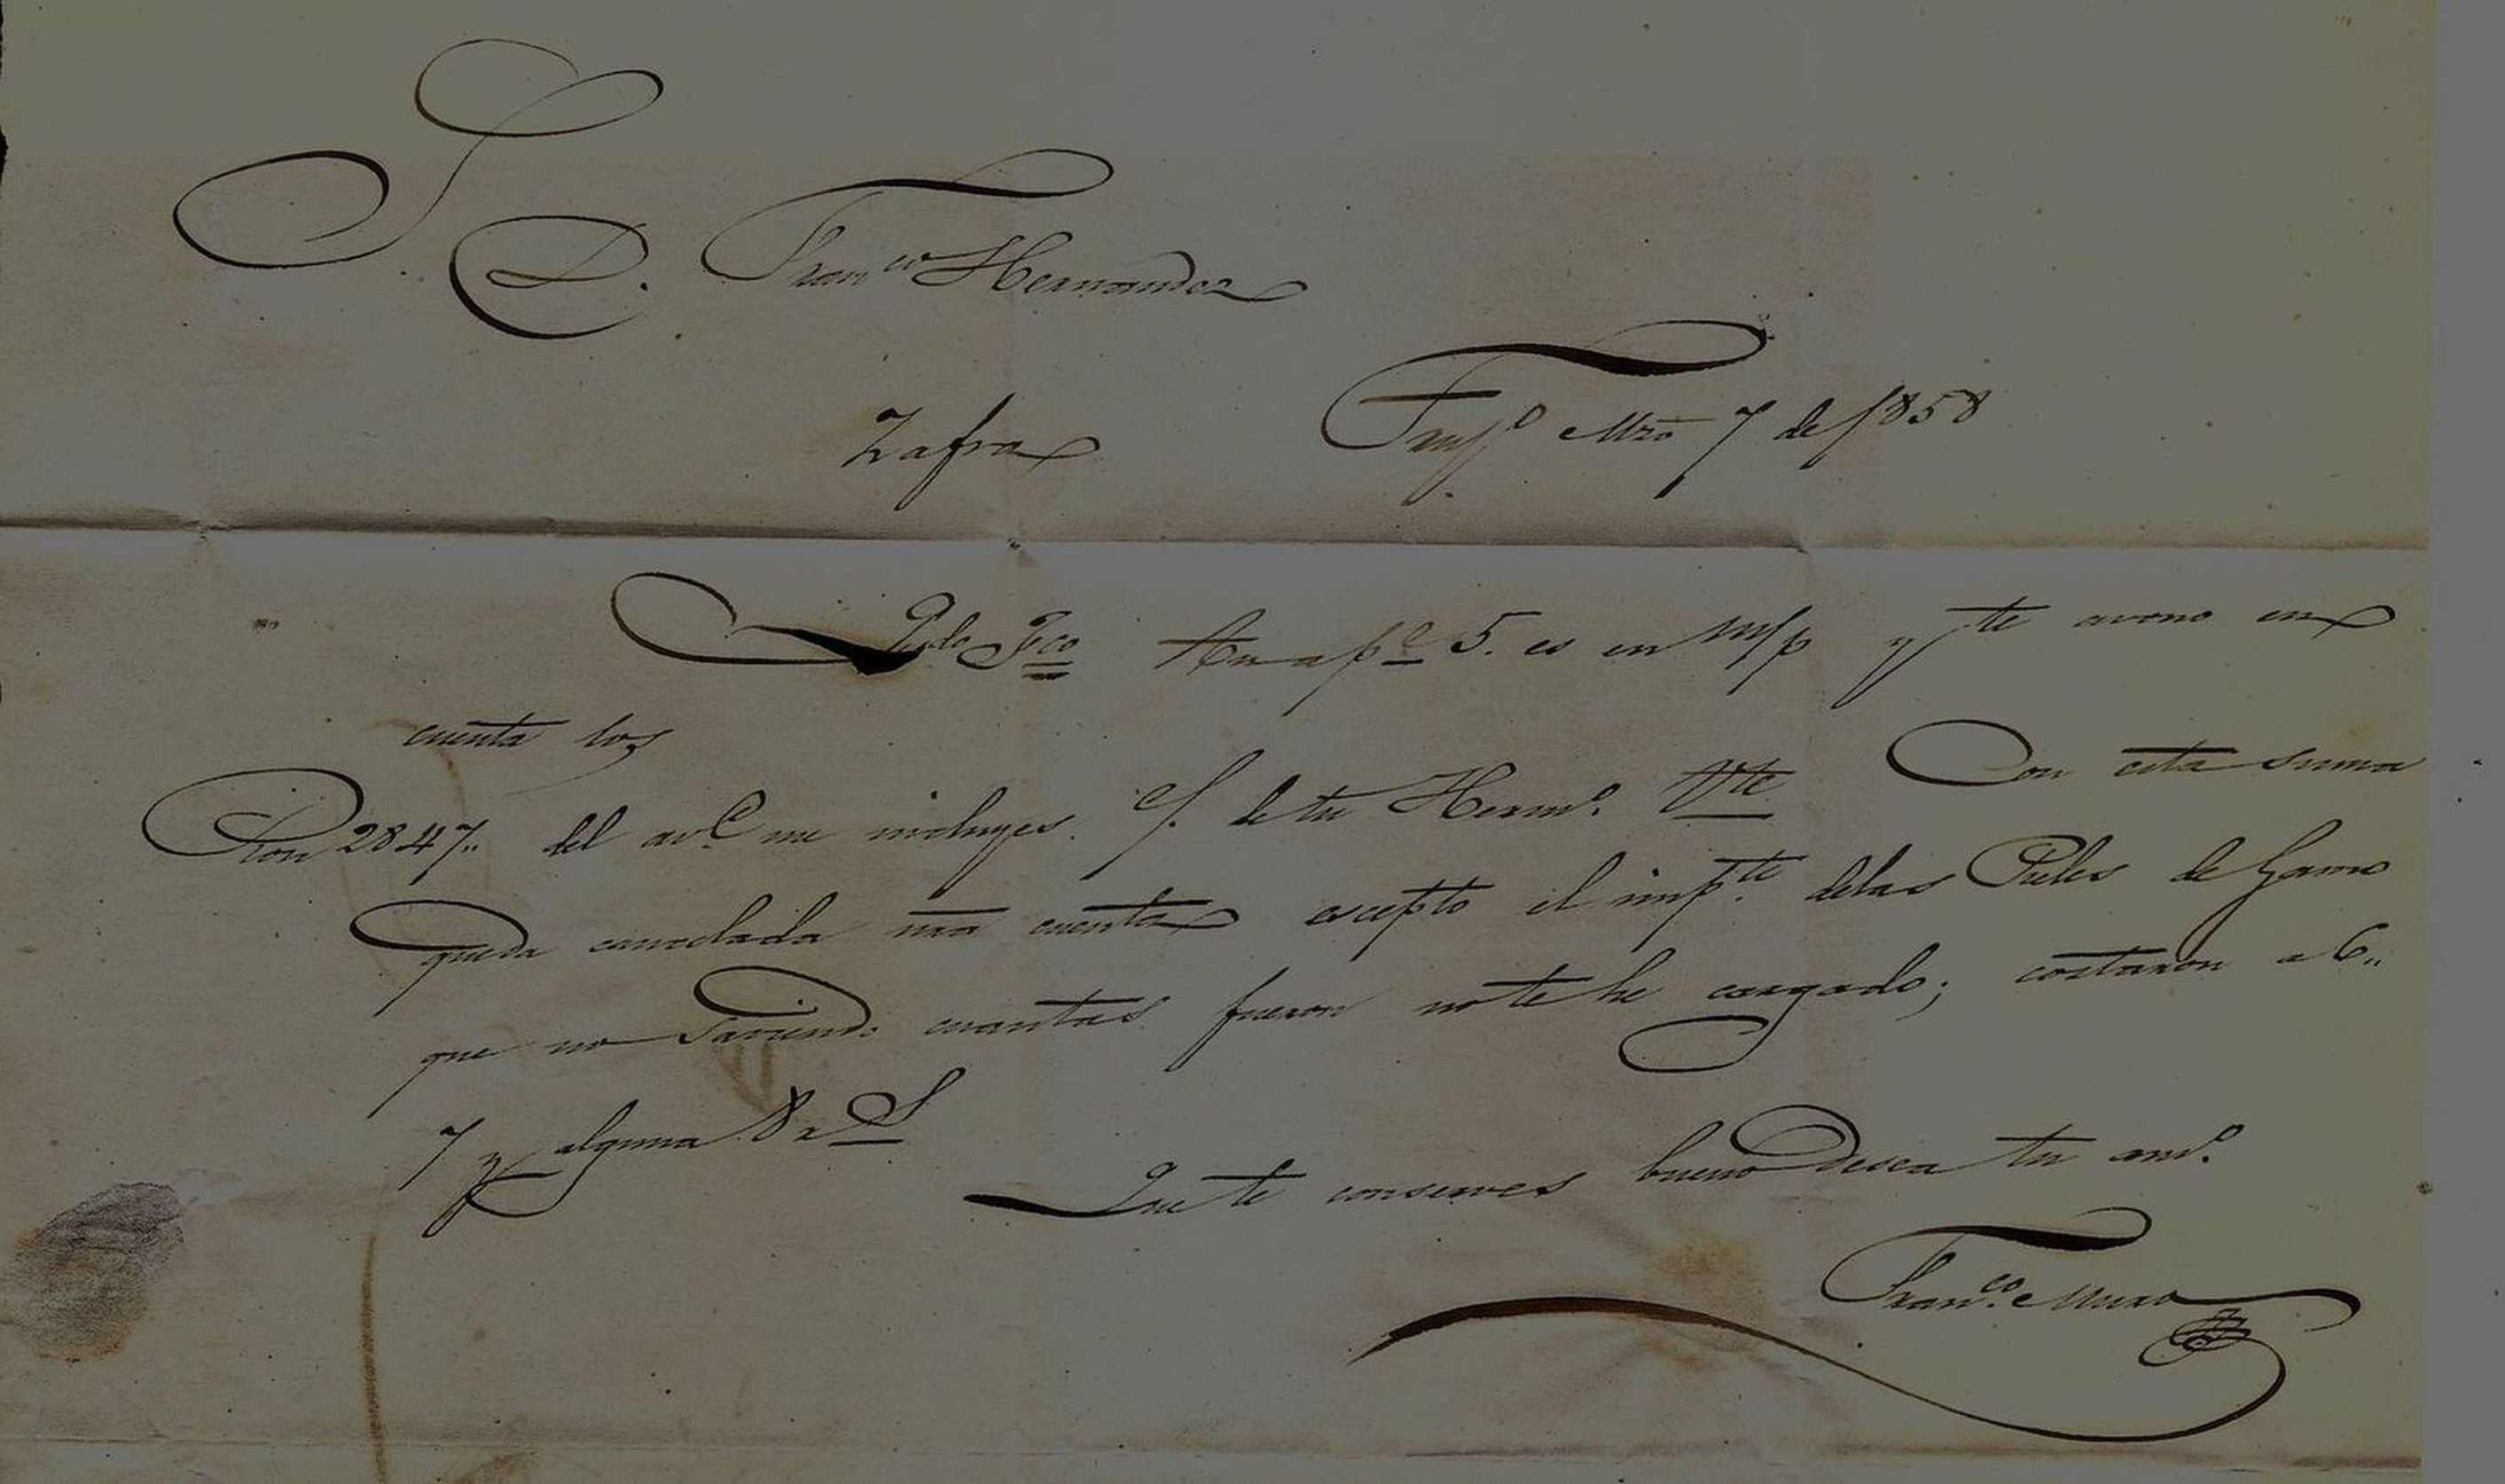 S.
D. Fran.co Hernandez
Zafra
Mzo 7 de 1858
Qdo Fco Tu ap.do 5. es en m/p y te avono en
cuenta los
Rvon 2847.. del av.o me incluyes. C/. de tu Herm.o Vte Con esta suma
queda cancelada nra cuenta escepto el imp.te delas Pieles de Gamo
que no saviendo cuantas fueron no te he cargado; costaron a 6..
7 y alguna 8 r.s
Que te conserves bueno desea tu am.o
Fran.co Muro